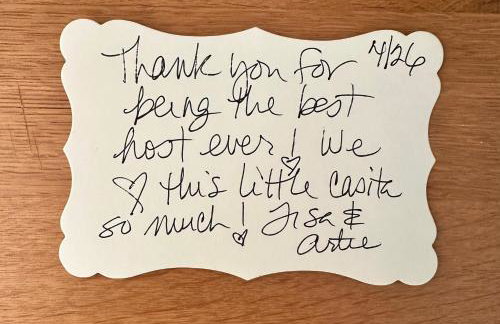 Thank you for 4/26
being the best
host ever! We
♡ this little casita
so much! Lisa &
Artie